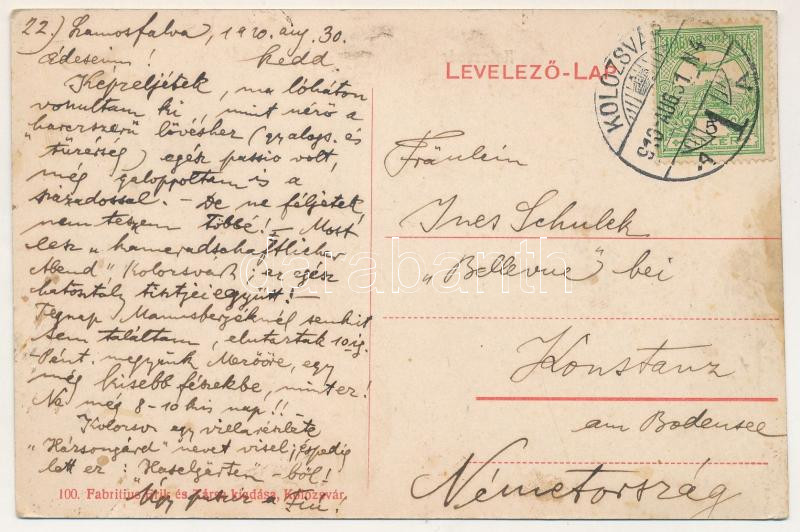 22.) Szamosfalva, 1910. aug. 30.
Édeseim! kedd.
Képzeljétek, ma lóháton
vonultam ki, mint néző a
harcszerű lövéshez (gyalogs. és
tüzérség) egész passio volt,
még galoppoltam is a
századossal. – De ne féljetek
nem teszem többé! – Most
lesz „kameradschaftlicher
Abend" Kolozsvárt; ez egész
hatosztály tisztjei együtt! –
Tegnap senkit
sem találtam, elutaztak 10ig.
– Pént. megyünk Mezőőre, egy
még kisebb fészekbe, mint ez!
Na még 8-10 kis nap!! –
Kolozsv. egy villarészlete
„Házsongárd" nevet visel; épedig
lett ez: Haselgarten – ből!
Így a
LEVELEZŐ-LAP
KOLOZSVÁR
910 AUG 31
MAGYAR KIR. POSTA
Fräulein
Ines Schulek
„Bellevue" bei
Konstanz
am Bodensee
Németország
darabanth
100. Fabritius Erik és Társa kiadása, Kolozsvár.